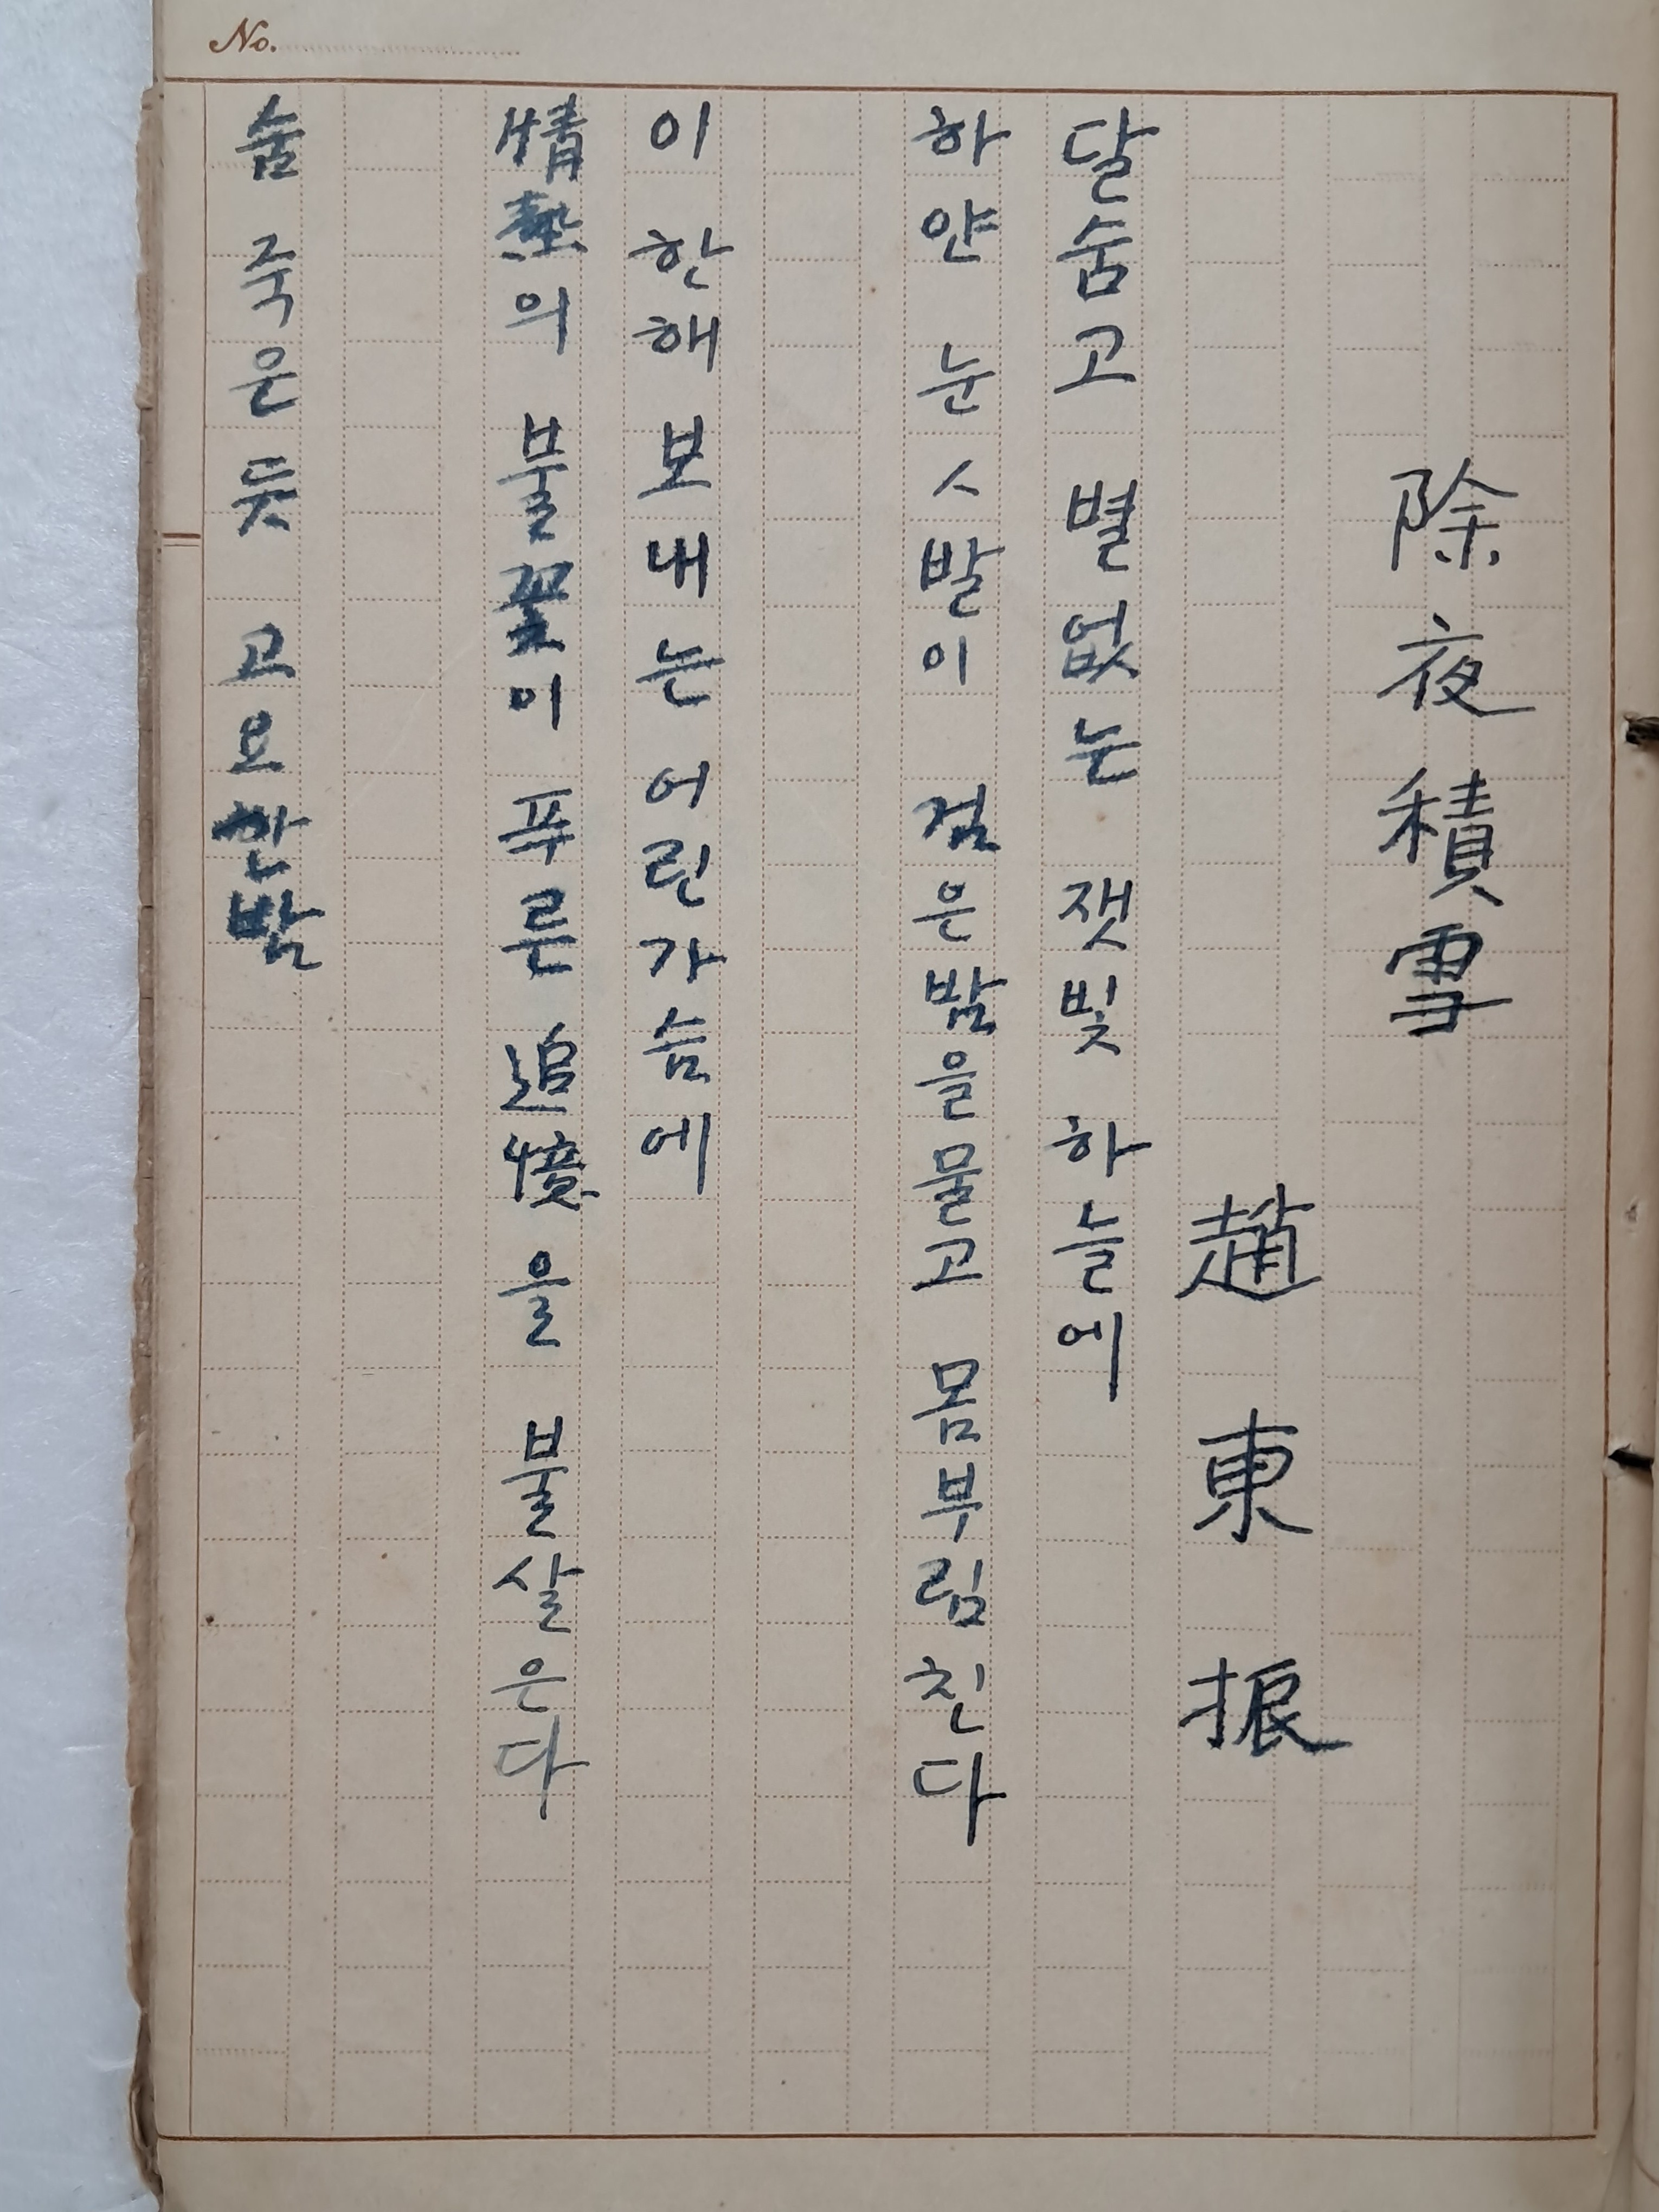 No.
除夜積雪
趙東振
달숨고 별없는 잿빛 하늘에
하얀 눈ㅅ발이 검은밤을물고 몸부림친다
이 한해 보내는 어린가슴에
情熱의 불꽃이 푸른 追憶을 불살은다
숨 죽은듯 고요한밤